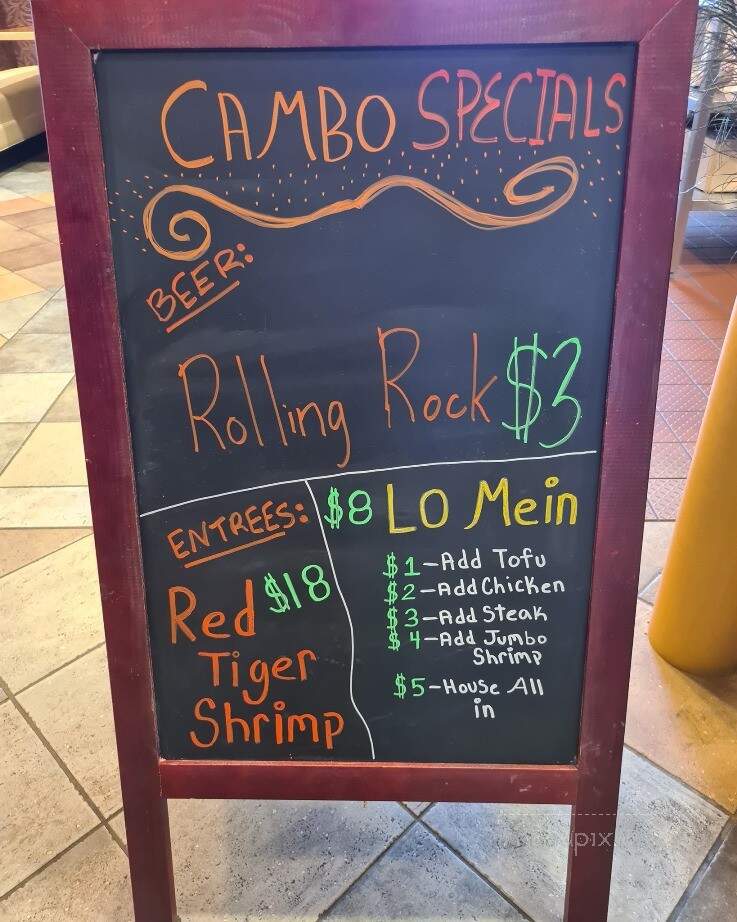 CAMBO SPECIALS
BEER:
Rolling Rock $3
ENTREES:
Red $18
Tiger
Shrimp
$8 LO Mein
$1-Add Tofu
$2-Add Chicken
$3-Add Steak
$4-Add Jumbo
Shrimp
$5-House All
in